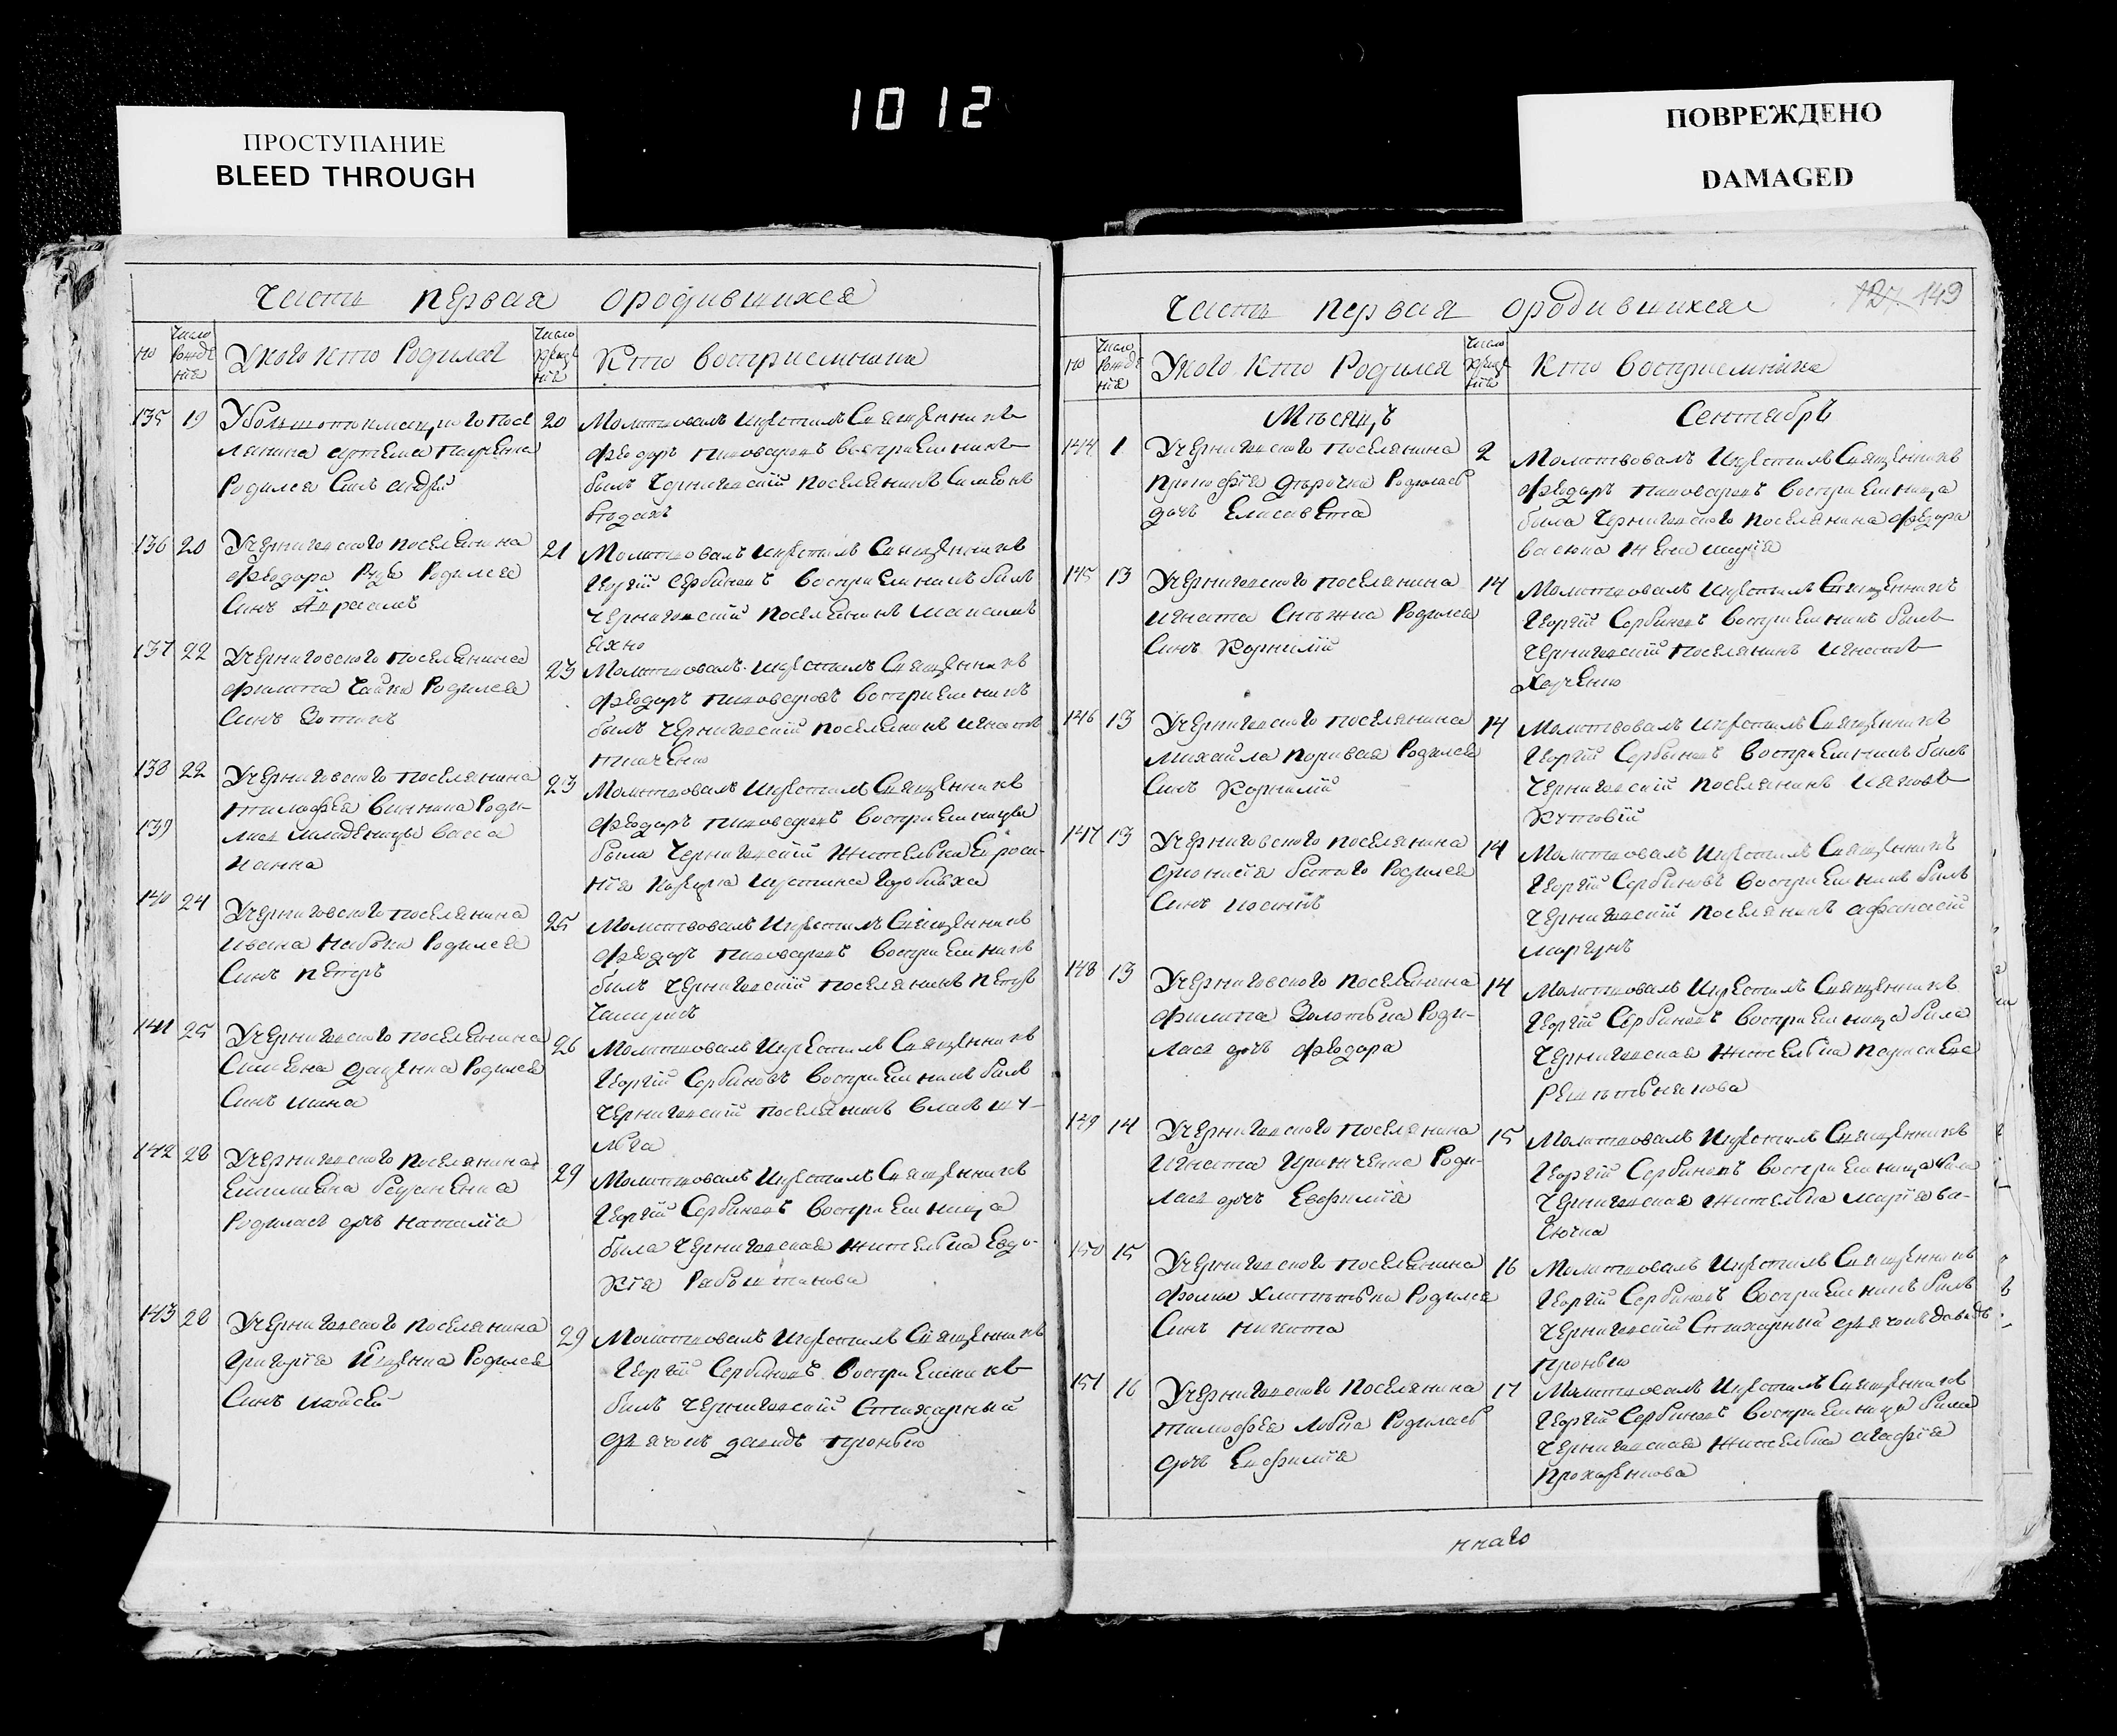 1012
ПРОСТУПАНИЕ
BLEED THROUGH
ПОВРЕЖДЕНО
DAMAGED
Часть первая ородившихся
но
Число рождения
У кого кто Родился
Число крещения
Кто восприемники
135 19
родился Синъ андрей
20 Молитвовалъ икрестилъ Священникъ
Феодоръ Пивоваровъ восприемникъ
былъ Черниговскій поселянинъ Симеонъ
136 20 Учерниговского поселянина
Феодора Родился
Синъ
21 Молитвовалъ икрестилъ Священникъ
Георгій Сербиновъ восприемникъ билъ
Черниговскій поселянинъ Максимъ
Яхно
137 22 Учерниговского поселянина
филиппа чайки Родился
Синъ
23 Молитвовалъ икрестилъ Священникъ
Феодоръ Пивоваровъ восприемникъ
былъ Черниговскій поселянинъ игнатъ
ткаченко
138 22 Учерниговского поселянина
тимофея Роди-
139 лися младенцы васса
ианна
23 Молитвовалъ икрестилъ Священникъ
Феодоръ Пивоваровъ восприемницы
была
140 24 Учерниговского поселянина
Родился
Синъ петръ
25 Молитвовалъ икрестилъ Священникъ
Феодоръ Пивоваровъ восприемникъ
былъ Черниговскій поселянинъ петръ
141 25 Учерниговского поселянина
Симеона доценка Родился
Синъ
26 Молитвовалъ икрестилъ Священникъ
Георгій Сербиновъ восприемникъ билъ
Черниговскій поселянинъ
142 28 Учерниговского поселянина
Емилияна
Родилась дочь наталія
29 Молитвовалъ икрестилъ Священникъ
Георгій Сербиновъ восприемница
была Черниговская жителька Евдо-
кія
143 28 Учерниговского поселянина
григорія Родился
Синъ мойсей
29 Молитвовалъ икрестилъ Священникъ
Георгій Сербиновъ восприемникъ
билъ Черниговскій Стихарный
дячокъ давидъ пронько
Часть первая ородившихся
127 149
но
Число рождения
У кого кто Родился
Число крещения
Кто восприемники
Мѣсяцъ Сентябръ
144 1 Учерниговского поселянина
прокофія Родилась
дочь Елисавета
2 Молитвовалъ икрестилъ Священникъ
Феодоръ Пивоваровъ восприемница
была Черниговского поселянина феодора
васюка жена марія
145 13 Учерниговского поселянина
игната Родился
Синъ Корнилій
14 Молитвовалъ икрестилъ Священникъ
Георгій Сербиновъ восприемникъ былъ
Черниговскій поселянинъ игнатъ
Харченко
146 13 Учерниговского поселянина
михайла поривая Родился
Синъ Корнилій
14 Молитвовалъ икрестилъ Священникъ
Георгій Сербиновъ восприемникъ билъ
Черниговскій поселянинъ ияковъ
Кутовій
147 13 Учерниговского поселянина
дионисія Родился
Синъ
14 Молитвовалъ икрестилъ Священникъ
Георгій Сербиновъ восприемникъ былъ
Черниговскій поселянинъ афанасій
моргунъ
148 13 Учерниговского поселянина
филиппа Золотька Роди-
лася дочь феодора
14 Молитвовалъ икрестилъ Священникъ
Георгій Сербиновъ восприемница била
Черниговская жителька параскева
149 14 Учерниговского поселянина
игната Гринченка Роди-
лася дочь Евфимія
15 Молитвовалъ икрестилъ Священникъ
Георгій Сербиновъ восприемница била
Черниговская жителька марія ва-
сючка
150 15 Учерниговского поселянина
фомы Родился
Синъ никита
16 Молитвовалъ икрестилъ Священникъ
Георгій Сербиновъ восприемникъ билъ
Черниговскій Стихарный дячокъ давидъ
пронько
151 16 Учерниговского поселянина
тимофея Родилась
дочь Евфимія
17 Молитвовалъ икрестилъ Священникъ
Георгій Сербиновъ восприемница била
Черниговская жителька агафія
ннаго